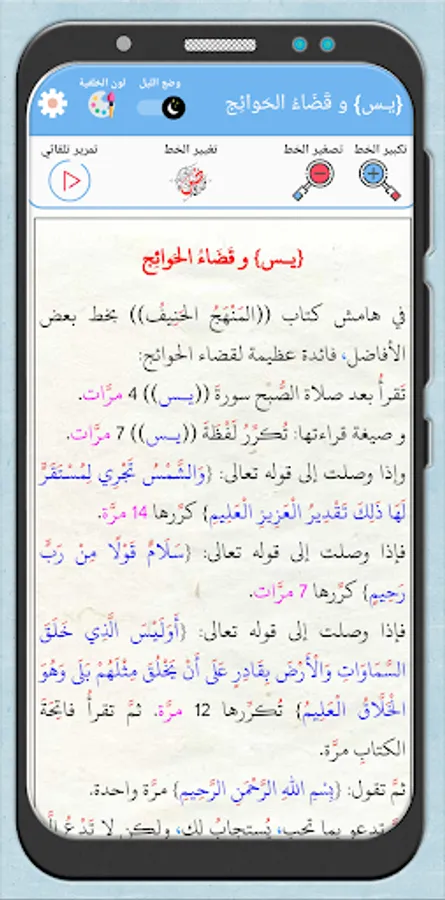 وضع الليل
لون الخلفية
{يـس} و قَضَاءُ الحَوائِج
تكبير الخط
تصغير الخط
تغيير الخط
تمرير تلقائي
{يـس} و قَضَاءُ الحَوائِج
في هامش كتاب ((المَنْهَجُ الحَنِيفُ)) بخط بعض
الأفاضل، فائدة عظيمة لقضاء الحوائج:
تَقرأُ بعد صلاة الصُّبْح سورةَ ((يــس)) 4 مرَّات.
و صيغة قراءتها: تُكرِّرُ لَفْظَةَ ((يــس)) 7 مرَّات.
وإذا وصلت إلى قوله تعالى: {وَالشَّمْسُ تَجْرِي لِمُسْتَقَرٍّ
لَهَا ذَلِكَ تَقْدِيرُ الْعَزِيزِ الْعَلِيمِ} كرِّرها 14 مرَّة.
فإذا وصلت إلى قوله تعالى: {سَلَامٌ قَوْلًا مِنْ رَبٍّ
رَحِيمٍ} كرِّرها 7 مرَّات.
فإذا وصلت إلى قوله تعالى: {أَوَلَيْسَ الَّذِي خَلَقَ
السَّمَاوَاتِ وَالْأَرْضَ بِقَادِرٍ عَلَى أَنْ يَخْلُقَ مِثْلَهُمْ بَلَى وَهُوَ
الْخَلَّاقُ الْعَلِيمُ} تُكرِّرها 12 مرَّة. ثمَّ تقرأُ فاتِحَةَ
الكتابِ مرَّة.
ثمَّ تقول: {بِسْمِ اللهِ الرَّحْمَنِ الرَّحِيمِ} مرَّة واحدة.
تدعو بما تحب، يُستجابُ لك، ولكن لا تَدْعُ